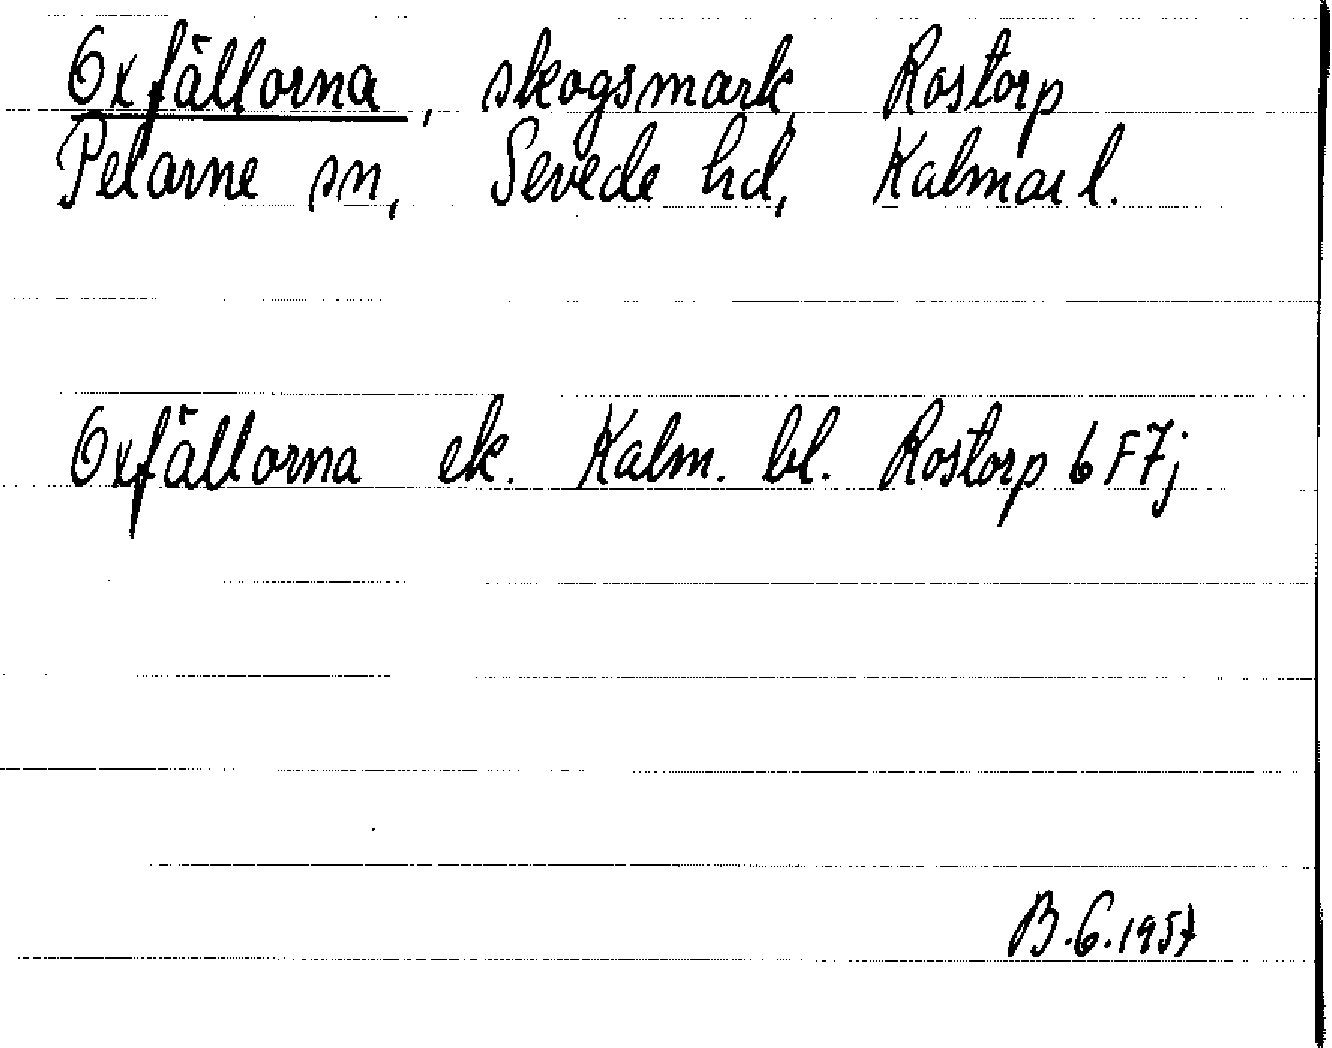 Oxfällorna, skogsmark, Rostorp
Pelarne sn, Sevede hd, Kalmar l.
Oxfällorna ek. Kalm. bl. Rostorp 6 F7j
B.G.1957